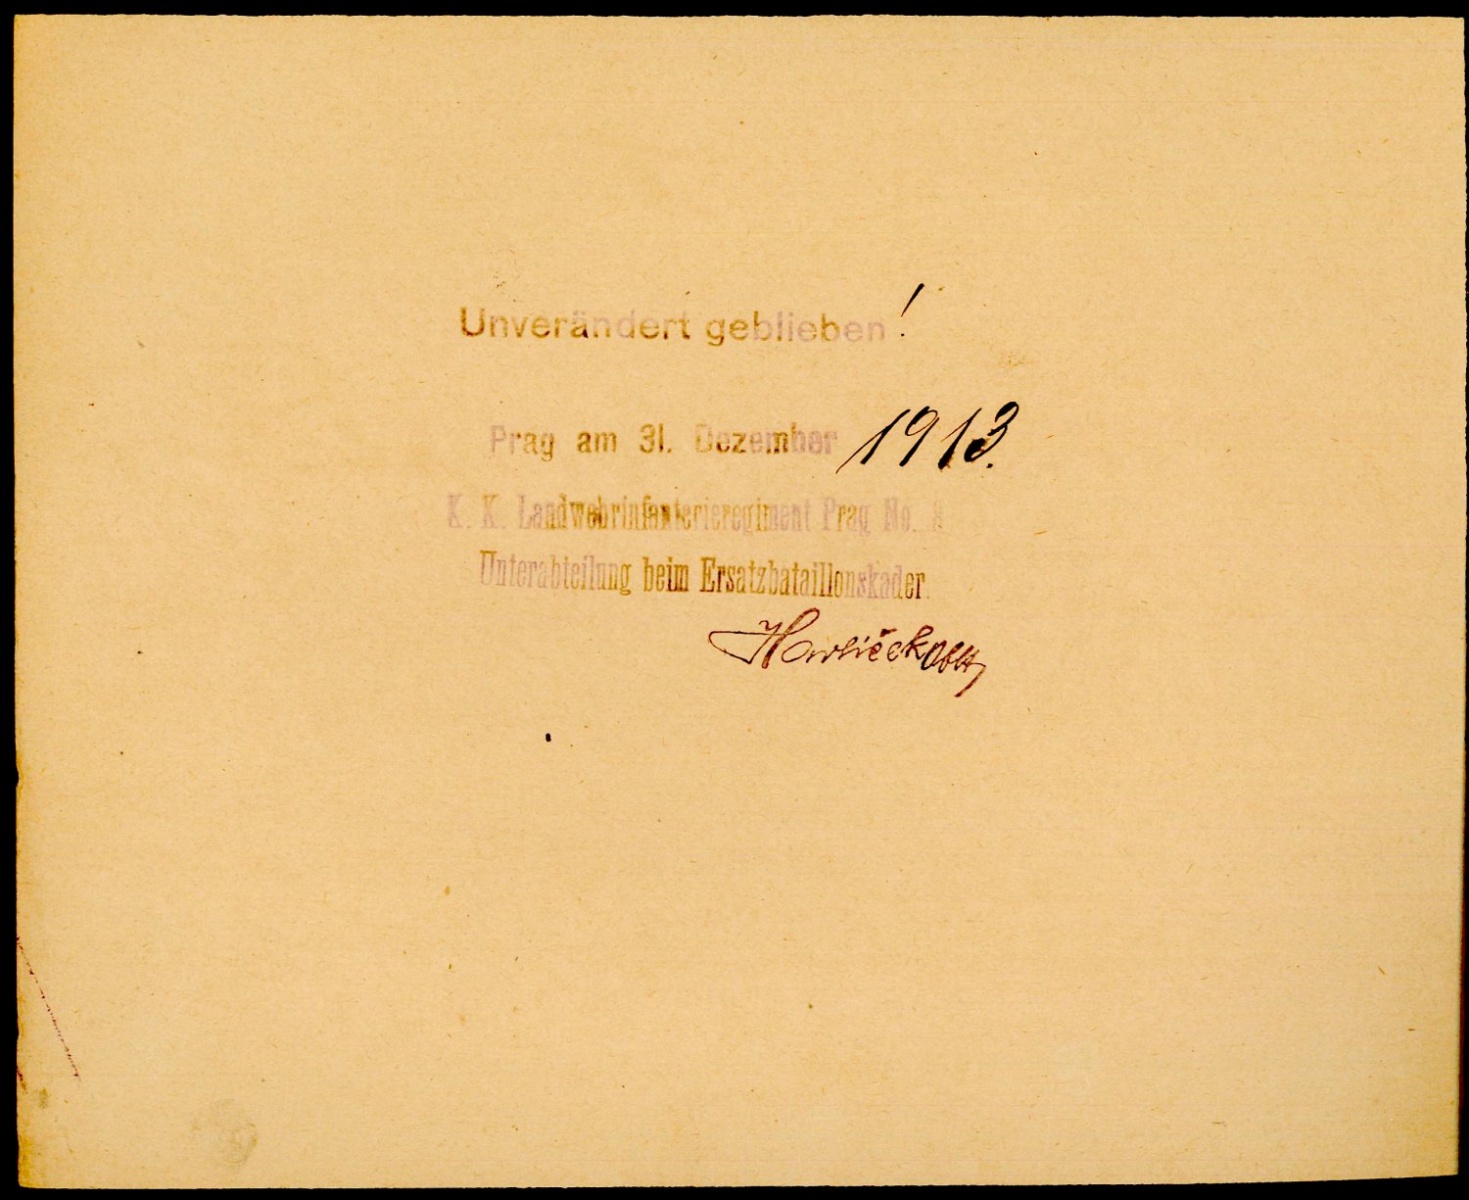 Unverändert geblieben!
Prag am 31. Dezember 1913.
K. K. Landwehrinfanterieregiment Prag No. 8
Unterabteilung beim Ersatzbataillonskader.
Havlíček Oblt